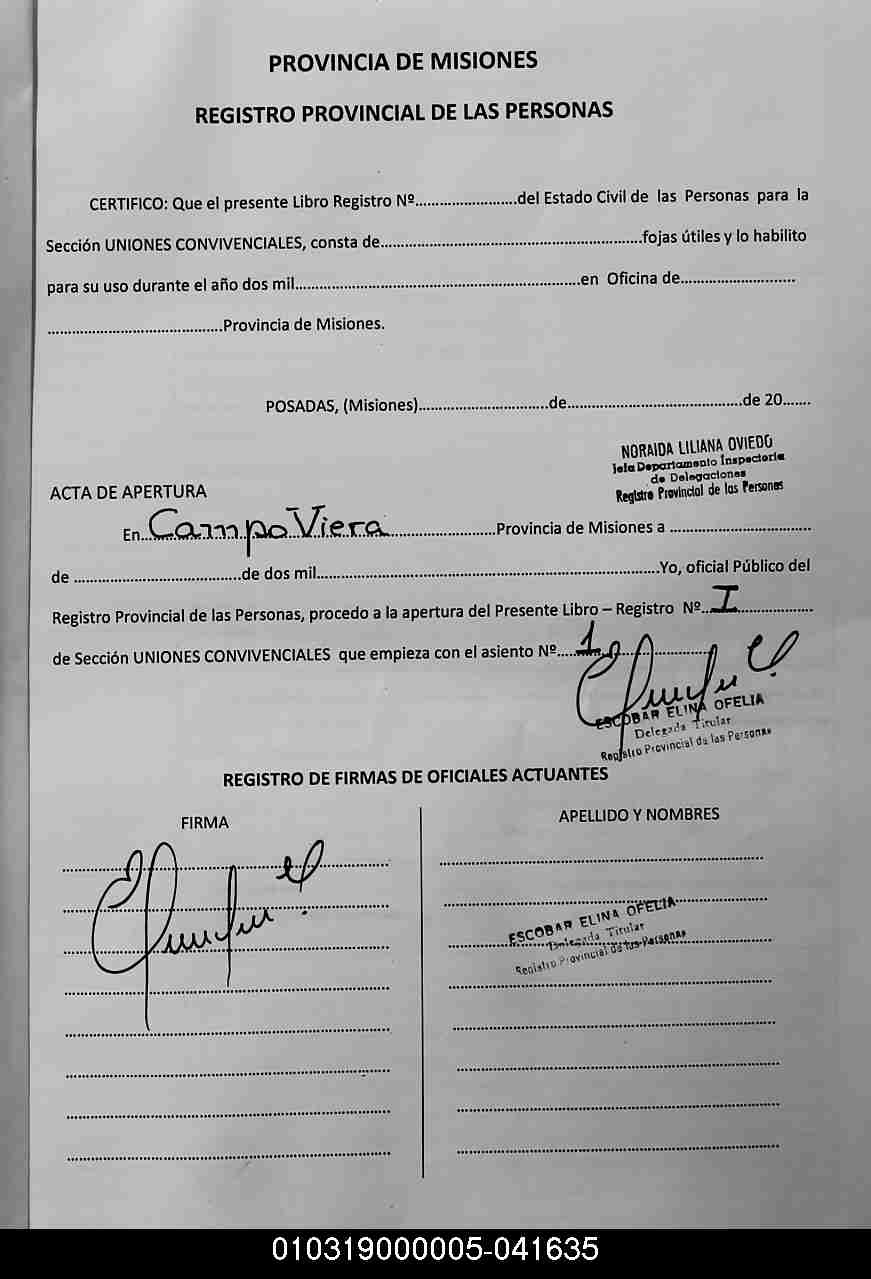 PROVINCIA DE MISIONES
REGISTRO PROVINCIAL DE LAS PERSONAS
CERTIFICO: Que el presente Libro Registro Nº.........................del Estado Civil de las Personas para la
Sección UNIONES CONVIVENCIALES, consta de................................................................fojas útiles y lo habilito
para su uso durante el año dos mil......................................................................en Oficina de............................
...........................................Provincia de Misiones.
POSADAS, (Misiones)................................de...........................................de 20.......
NORAIDA LILIANA OVIEDO
Jefa Departamento Inspectoria
de Delegaciones
Registro Provincial de las Personas
ACTA DE APERTURA
En..Campo Viera..........................Provincia de Misiones a ...................................
de .........................................de dos mil....................................................................................Yo, oficial Público del
Registro Provincial de las Personas, procedo a la apertura del Presente Libro – Registro Nº..I...................
de Sección UNIONES CONVIVENCIALES que empieza con el asiento Nº.....1..........................
ESCOBAR ELINA OFELIA
Delegada Titular
Registro Provincial de las Personas
REGISTRO DE FIRMAS DE OFICIALES ACTUANTES
FIRMA
APELLIDO Y NOMBRES
ESCOBAR ELINA OFELIA
Delegada Titular
Registro Provincial de las Personas
010319000005-041635